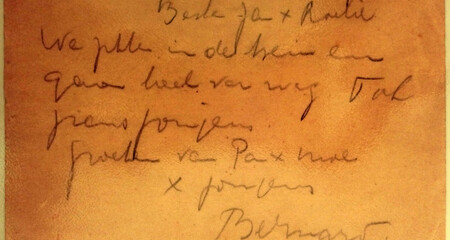 Beste Ja x
We zitten in de trein en
gaan heel ver weg
jongens
Groeten van Pa x moe
x jongens
Bernard